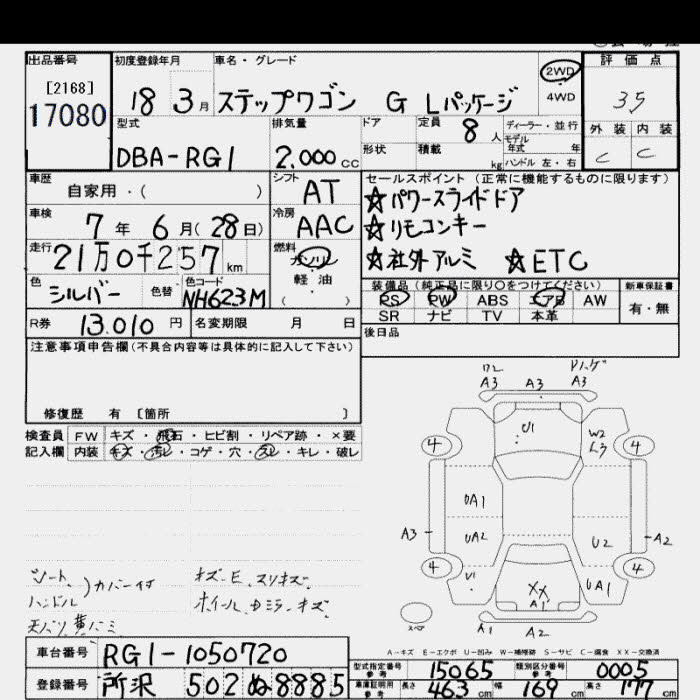 出品番号 初度登録年月 車名・グレード 評価点
[2168]
17080
18 3月 ステップワゴン G Lパッケージ 2WD 4WD 35
型式 排気量 ドア 定員 8人 ディーラー・並行 外装 内装
DBA-RG1 2,000cc 形状 積載 kg モデル年式 年 ハンドル 左・右 C C
車歴 自家用・( ) シフト AT セールスポイント(正常に機能するものに限ります)
☆パワースライドドア
車検 7年 6月(28日) 冷房 AAC ☆リモコンキー
走行 21万0千257km 燃料 ガソリン ☆社外アルミ ☆ETC
軽油
( )
色 シルバー 色替 色コード NH623M 装備品(純正品に限り〇をつけてください) 新車保証書
PS PW ABS エアB AW 有・無
SR ナビ TV 本革
R券 13.010円 名変期限 月 日 後日品
注意事項申告欄(不具合内容等は具体的に記入して下さい)
修復歴 有 [箇所 ]
検査員 FW キズ・飛石・ヒビ割・リペア跡・×要
記入欄 内装 キズ・汚れ・コゲ・穴・スレ・キレ・破レ
A3 A3 A3
U1
W2
L3
4 4
UA1
A3 UA2 U2 A2
4 4
U1 XX UA1
A1
スペア A1 A2
シート、ハンドル)カバー付
キズ・E、スリキズ、
ホイール、ドミラーキズ
A-キズ E-エクボ U-凹み W-補修跡 S-サビ C-腐食 XX-交換済
車台番号 RG1-1050720 型式指定番号 参考 15065 類別区分番号 参考 0005
登録番号 所沢 502 ぬ8885 車庫証明用 参考 長さ 463cm 幅 169cm 高さ 177cm